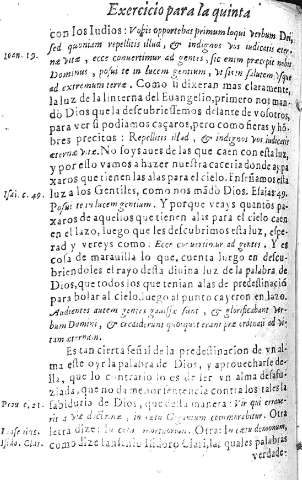 Exercicio para la quinta
con los Iudios: Vobis opportebat primum loqui verbum Dei,
sed quoniam repellitis illud, & indignos vos iudicatis eter-
næ vitæ, ecce convertimur ad gentes, sic enim præcepit nobis
Dominus, posui te in lucem gentium, ut sis in salutem usque
ad extremum terræ. Como si dixeran mas claramente,
la luz de la linterna del Euangelio, primero nos man-
dò Dios que la descubriessemos delante de vosotros,
para ver si podiamos caçaros, pero como fieras y hõ-
bres precitos: Repellitis illud, & indignos vos iudicatis
æternæ vitæ. No soys aues de las que caen con esta luz,
y por esso vamos a hazer nuestra caceria donde ay pa-
xaros que tienen las alas para el cielo. Enseñamos esta
luz a los Gentiles, como nos mãdò Dios. Esaias. 49.
Posui te in lucem gentium. Y porque veays quantos pa-
xaros de aquellos que tienen alas para el cielo caen
en el lazo, luego que les descubrimos esta luz, espe-
rad y vereys como: Ecce convertimur ad gentes. Y es
cosa de marauilla lo que, cuenta luego en descu-
briendoles el rayo desta diuina luz de la palabra de
Dios, que todos los que tenian alas de predestinaciõ
para bolar al cielo, luego al punto cayeron en lazo.
Audientes autem gentes gauisæ sunt, & glorificabant ver-
bum Domini, & crediderunt quotquot erant præ ordinati ad vi-
tam æternam.
Es tan cierta señal de la predestinacion de vn al-
ma este oyr la palabra de Dios, y aprouecharse de-
lla, que lo contrario lo es de ser vn alma
que no da
sabiduria de Dios, que desta manera: Vir qui errave-
rit a via doctrinæ, in cœtu Gigantum commorabitur. Otra
letra dize: In cœtu mortuorum. Otra: In cœtu dæmonum,
como dize Isidoro Clari, las quales palabras
verdade-
Ioan. 19.
Isai. c. 49.
Prou. c. 21.
Isido. Clar.